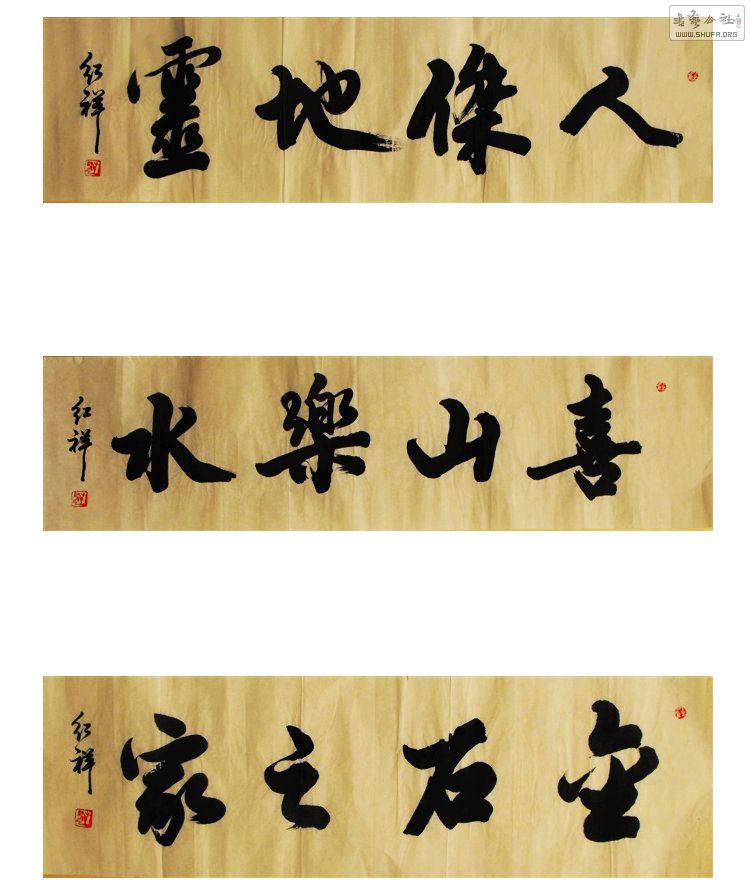 書藝公社
WWW.SHUFA.ORG
人傑地靈
紅祥
喜山樂水
紅祥
金石之家
紅祥